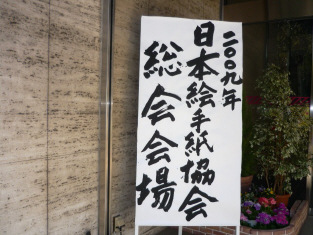 二〇〇九年
日本絵手紙協会
総会会場